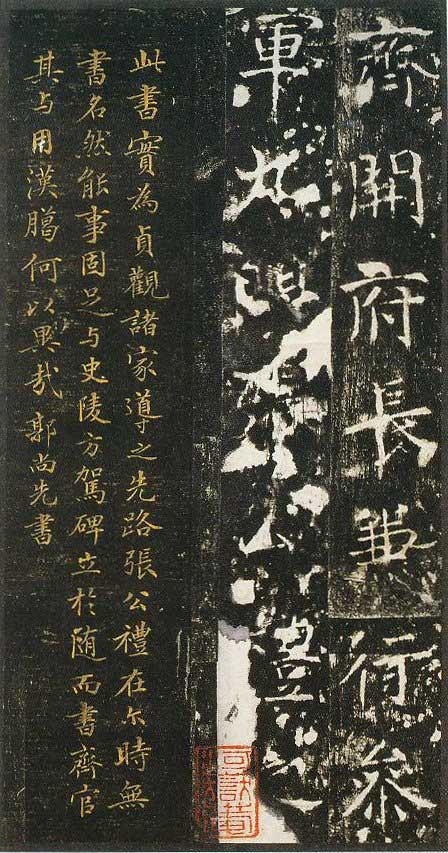 齊開府長兼行參
軍九門張公禮之
此書實為貞觀諸家導之先路張公禮在尔時無
書名然能事固足与史陵方駕碑立於随而書齊官
其与用漢臈何以異哉郭尚先書